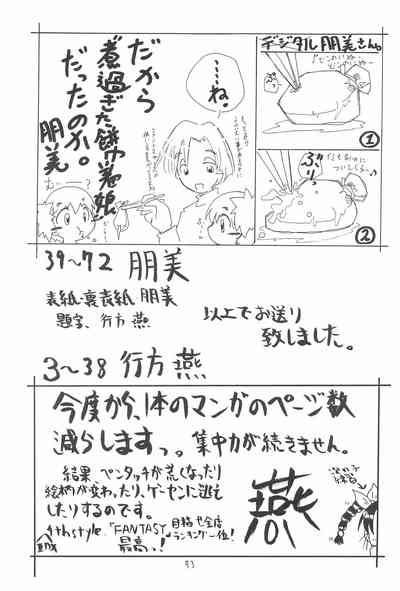 デジタル朋美さん。
①
ぶりっ
②
……ね。
だから
煮過ぎた餅巾着娘
だったのか。
朋美
39~72 朋美
表紙・裏表紙 朋美
題字、行方 燕
以上でお送り
致しました。
3~38 行方 燕
今度から、1本のマンガのページ数
減らしますっ。集中力が続きません。
結果、ペンタッチが荒くなったり
絵柄が変わったり、ゲーセンに逃亡
したりするのです。
4thstyle、「FANTASY」
最高っ!
目指せ全店
ランキング一位!
燕